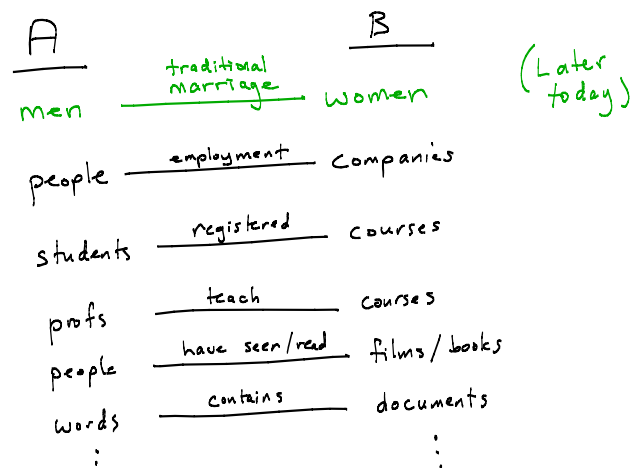 A B
traditional
marriage
men women (Later
today)
people employment companies
students registered courses
profs teach courses
people have seen/read films/books
words contains documents